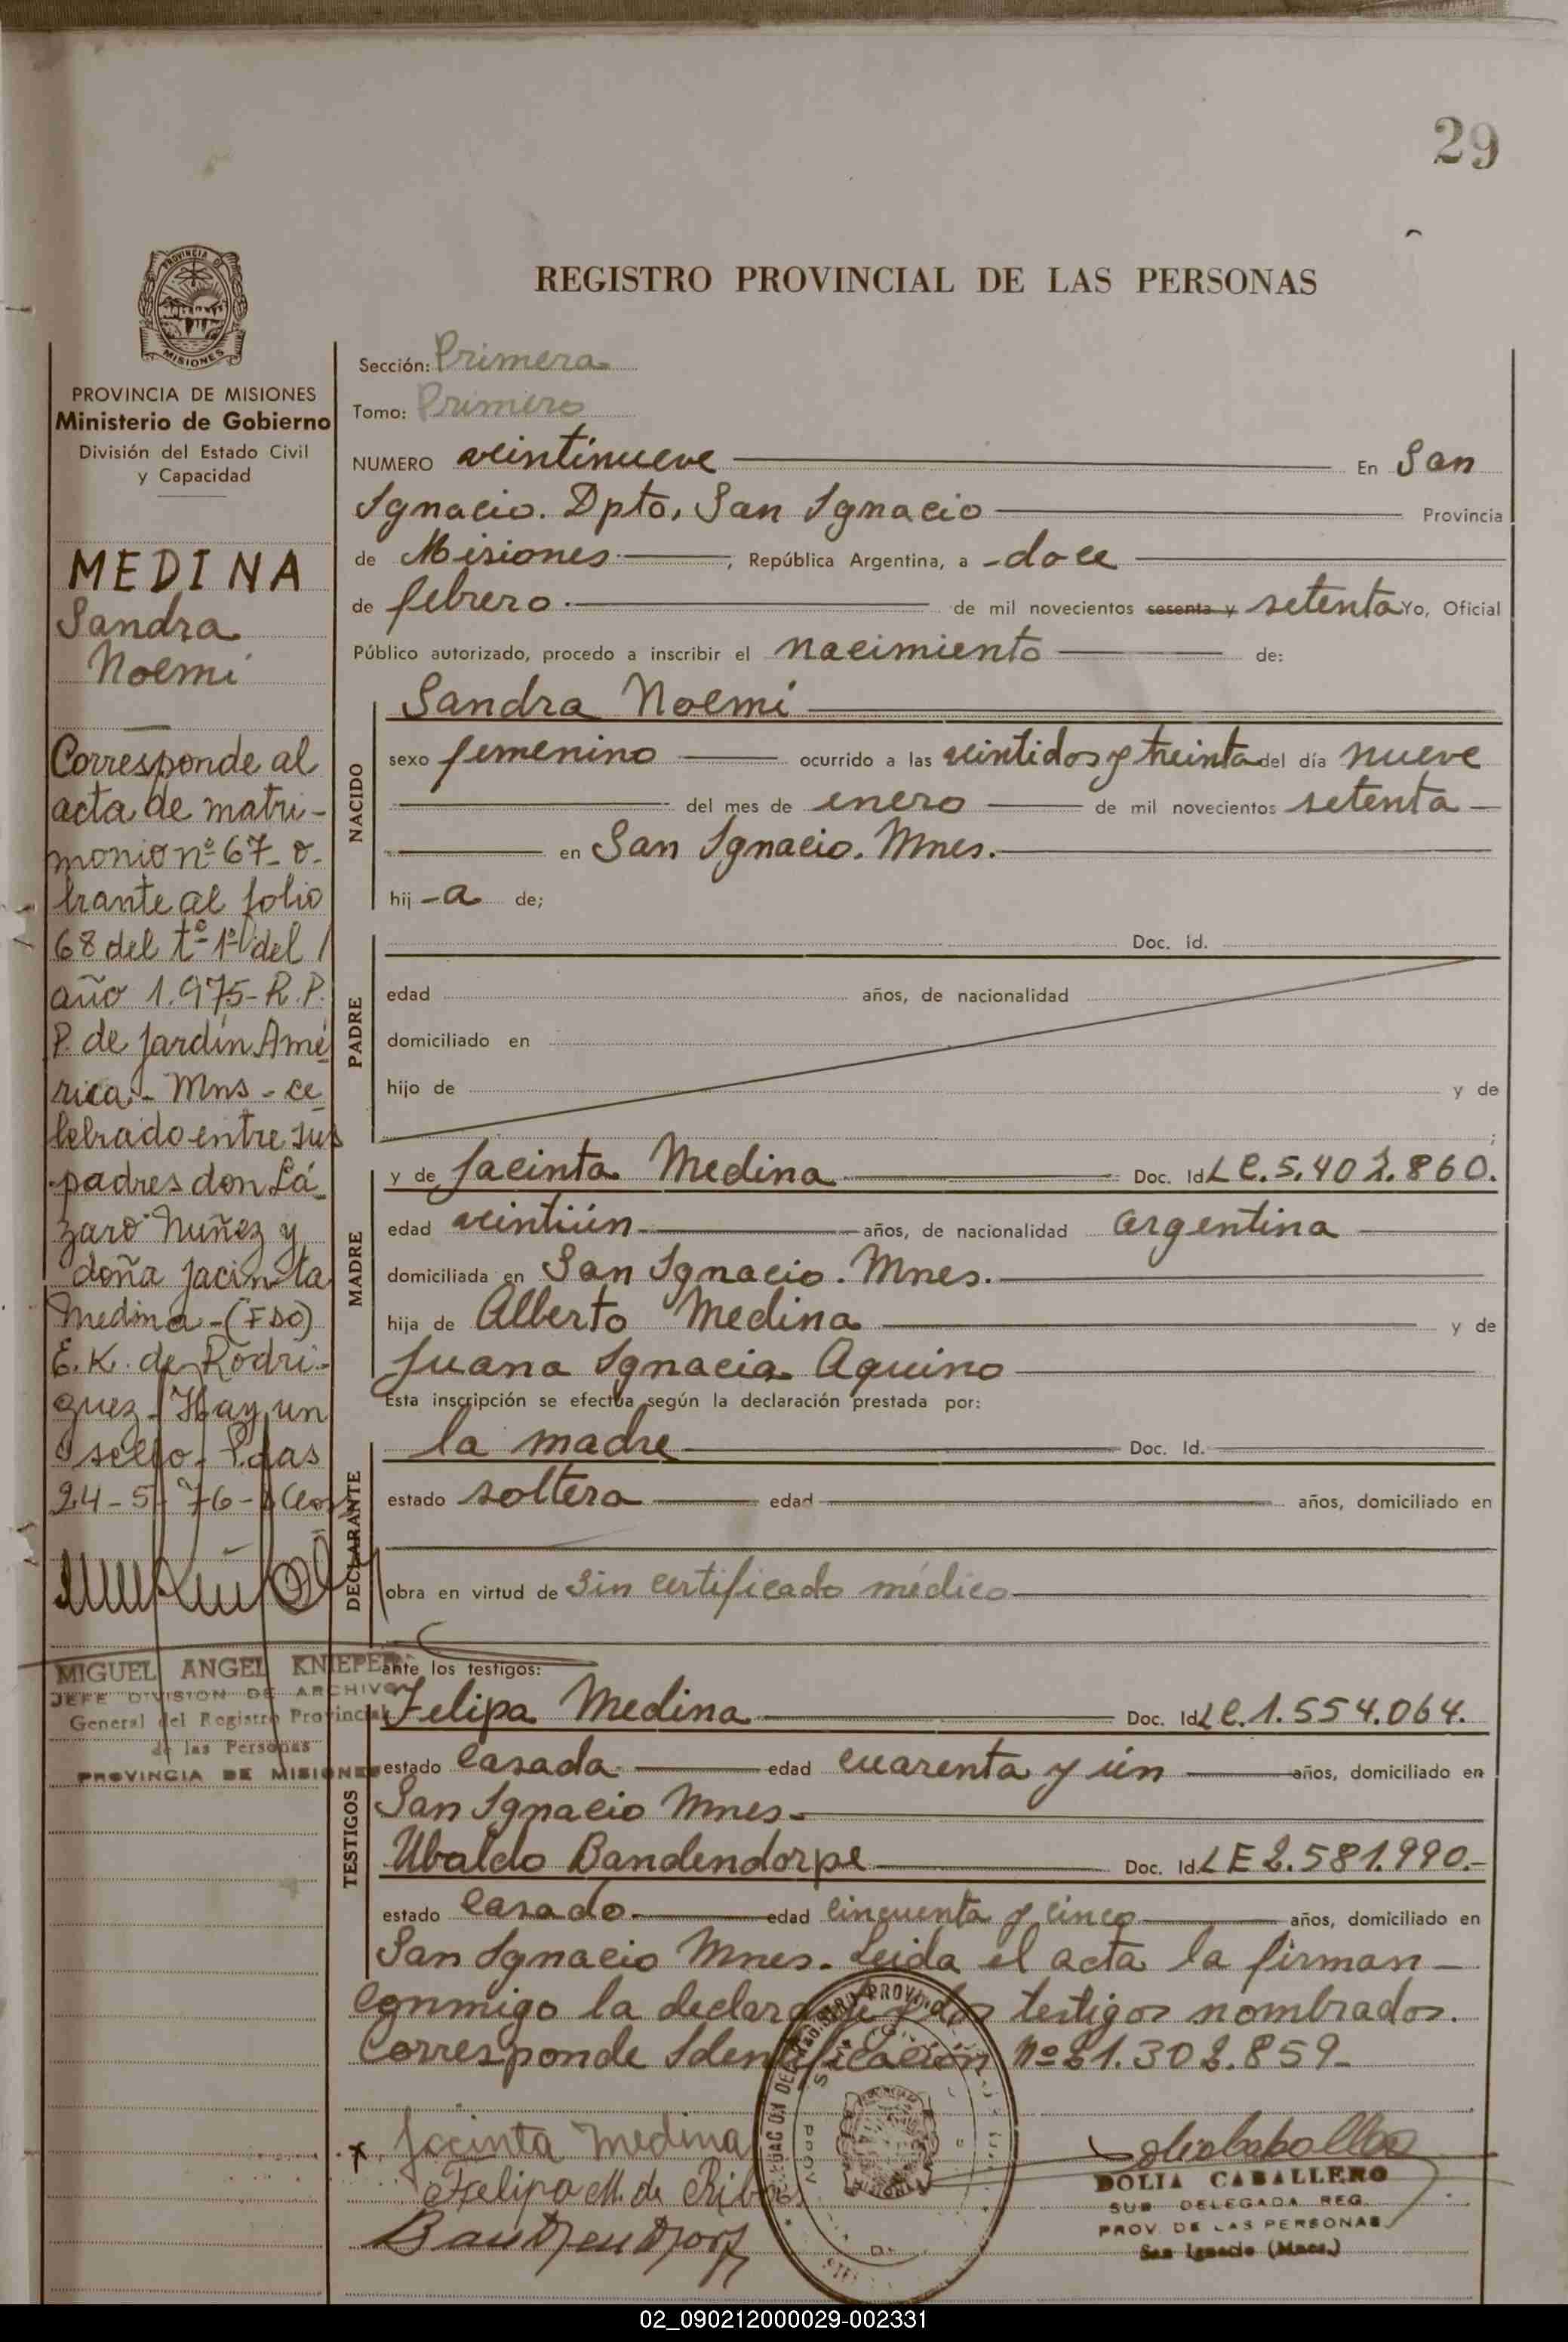 29
REGISTRO PROVINCIAL DE LAS PERSONAS
PROVINCIA DE MISIONES
Ministerio de Gobierno
División del Estado Civil
y Capacidad
MEDINA
Sandra
Noemí
Corresponde al
acta de matri-
monio nº 67- o-
brante al folio
68 del tº 1º del
año 1.975- R.P.
P. de Jardín Amé
rica - Mns - ce
lebrado entre sus
padres don Lá
zaro Nuñez y
doña Jacinta
Medina - (FDO)
E.K. de Rodri-
guez - Hay un
sello. Pdas
24-5-76-
MIGUEL ANGEL KNIEPER
JEFE DIVISION DE ARCHIVO
General del Registro Provincial
de las Personas
PROVINCIA DE MISIONES
Sección: Primera
Tomo: Primero
NUMERO veintinueve En San
Ignacio. Dpto, San Ignacio Provincia
de Misiones, República Argentina, a -doce
de febrero. de mil novecientos sesenta y setenta Yo, Oficial
Público autorizado, procedo a inscribir el nacimiento de:
NACIDO
Sandra Noemí
sexo femenino ocurrido a las veintidos y treinta del día nueve
del mes de enero de mil novecientos setenta
en San Ignacio. Mnes.
hij -a de;
PADRE
Doc. Id.
edad años, de nacionalidad
domiciliado en
hijo de y de
;
MADRE
y de Jacinta Medina Doc. Id. L C. 5.402.860.
edad veintiún años, de nacionalidad argentina
domiciliada en San Ignacio. Mnes.
hija de Alberto Medina y de
Juana Ignacia Aquino
Esta inscripción se efectúa según la declaración prestada por:
DECLARANTE
la madre Doc. Id.
estado soltera edad años, domiciliado en
obra en virtud de sin certificado médico
ante los testigos:
TESTIGOS
Felipa Medina Doc. Id. L C. 1.554.064.
estado casada edad cuarenta y ún años, domiciliado en
San Ignacio Mnes.
Ubaldo Bandendorpe Doc. Id. L E 2.581.990.-
estado casado edad cincuenta y cinco años, domiciliado en
San Ignacio Mnes. Leida el acta la firman
conmigo la declarante y los testigos nombrados.
Corresponde Identificación Nº 21.302.859-
Jacinta Medina
Felipa M. de
DOLIA CABALLERO
SUB DELEGADA REG.
PROV. DE LAS PERSONAS
San Ignacio (Mnes.)
02_090212000029-002331